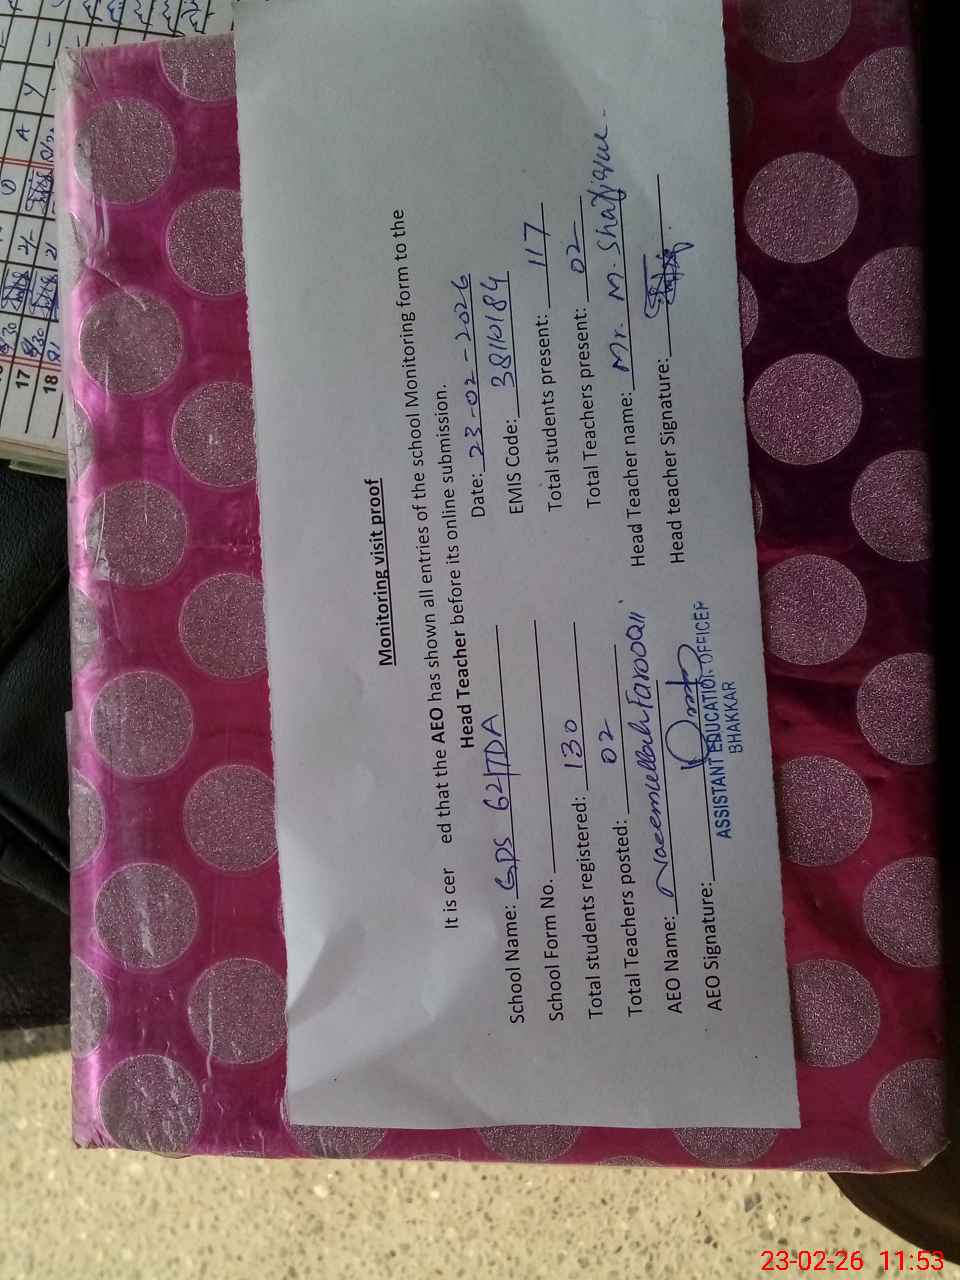 Monitoring visit proof
It is cer ed that the AEO has shown all entries of the school Monitoring form to the
Head Teacher before its online submission.
Date: 23-02-2026
School Name: GPS 62/TDA EMIS Code: 38110184
School Form No. Total students present: 117
Total students registered: 130 Total Teachers present: 02
Total Teachers posted: 02 Head Teacher name: Mr. M. Shafique.
AEO Name: Naeemullah Farooqi Head teacher Signature:
AEO Signature:
ASSISTANT EDUCATION OFFICER
BHAKKAR
17
18
23-02-26 11:53